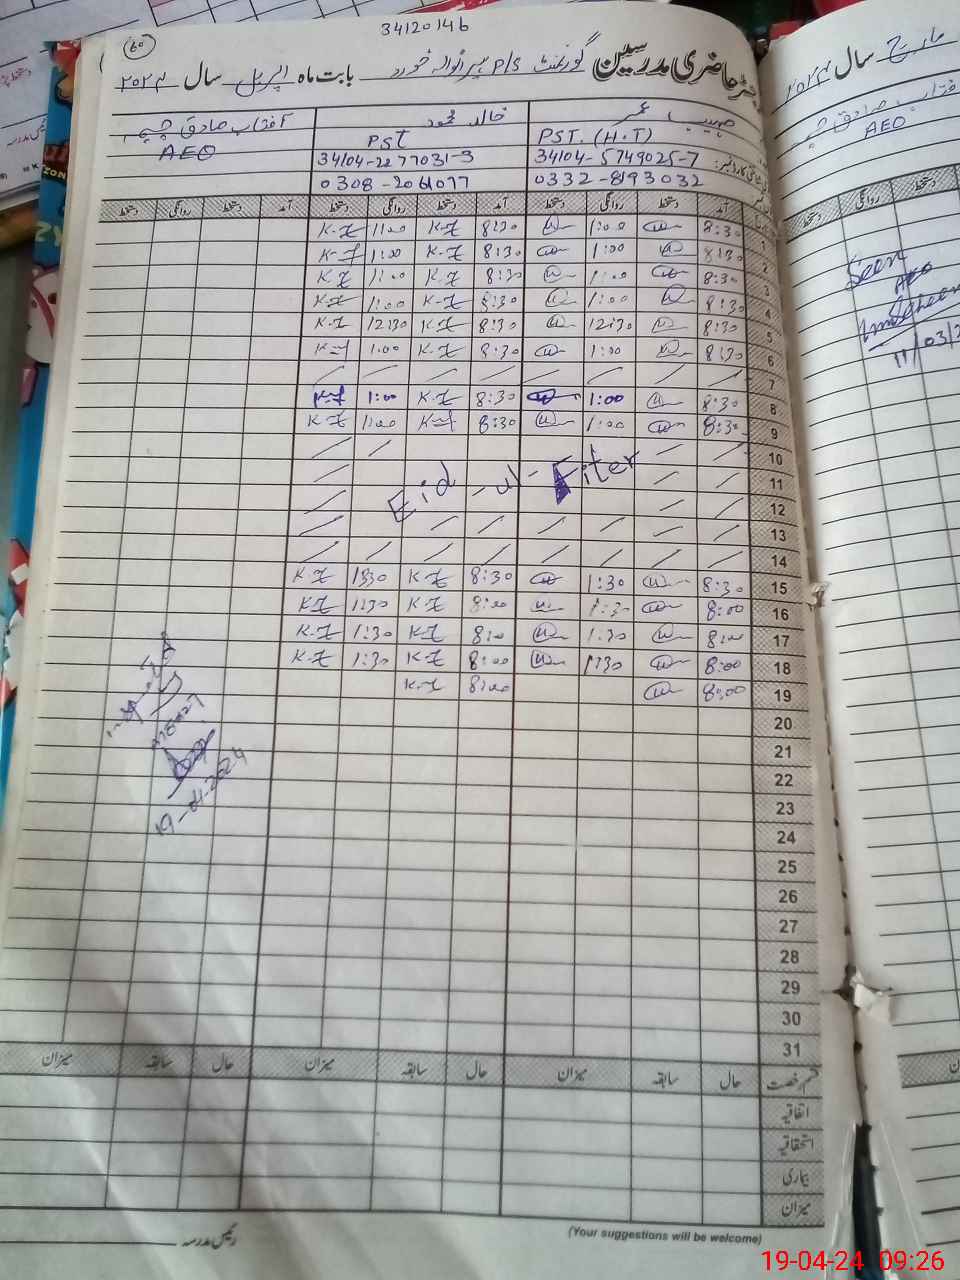 34120146
60
رجسٹر حاضری مدرسین گورنمنٹ P/S بابت ماہ اپریل سال ۲۰۲۴
صہیب عمر خالد محمود آفتاب صادق چیمہ
PST. (H.T) PST AEO
34104-5749025-7 34104-2277031-3
0332-8193032 0308-2061077
آمد دستخط روانگی دستخط آمد دستخط روانگی دستخط آمد دستخط روانگی دستخط
1 8:30 1:00 8:30 K-Z 1:00 K-Z
2 8:30 1:00 8:30 K-Z 1:00 K-Z
3 8:30 1:00 8:30 K-Z 1:00 K-Z
4 8:30 1:00 8:30 K-Z 1:00 K-Z
5 8:30 12:30 8:30 K-Z 12:30 K-Z
6 8:30 1:00 8:30 K-Z 1:00 K-Z
7
8 8:30 1:00 8:30 K-Z 1:00 K-Z
9 8:30 1:00 8:30 K-Z 1:00 K-Z
10
11
Eid-ul-Fiter
12
13
14
15 8:30 1:30 8:30 K-Z 1:30 K-Z
16 8:00 1:30 8:00 K-Z 1:30 K-Z
17 8:00 1:30 8:00 K-Z 1:30 K-Z
18 8:00 1:30 8:00 K-Z 1:30 K-Z
19 8:00 8:00 K-Z
20
21
22
23
24
25
26
27
28
29
30
31
19-04-2024
قسم رخصت حال سابقہ میزان حال سابقہ میزان حال سابقہ میزان
اتفاقیہ
استحقاقیہ
بیماری
میزان
رئیس مدرسہ
(Your suggestions will be welcome)
مارچ سال ۲۰۲۴
آفتاب صادق چیمہ
AEO
روانگی دستخط
Seen
AEO
11/03/2
19-04-24 09:26